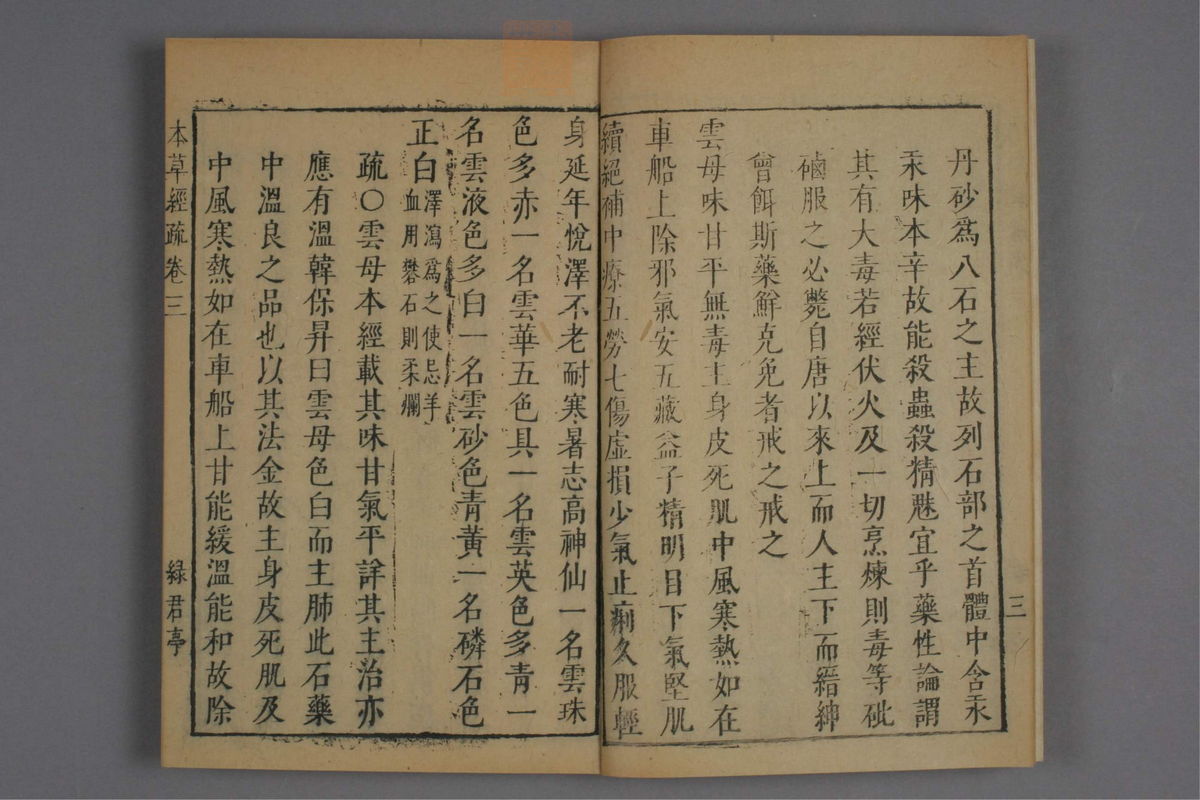 三
丹砂爲八石之主故列石部之首體中含汞
汞味本辛故能殺蟲殺精魅宜乎藥性論謂
其有大毒若經伏火及一切烹煉則毒等砒
䃟服之必斃自唐以來上而人主下而縉紳
曾餌斯藥鮮克免者戒之戒之
雲母味甘平無毒主身皮死肌中風寒熱如在
車船上除邪氣安五藏益子精明目下氣堅肌
續絕補中療五勞七傷虛損少氣止痢久服輕
身延年悅澤不老耐寒暑志高神仙一名雲珠
色多赤一名雲華五色具一名雲英色多青一
名雲液色多白一名雲砂色青黃一名磷石色
正白澤瀉爲之使忌羊
血用礬石則柔爛
疏〇雲母本經載其味甘氣平詳其主治亦
應有溫韓保昇曰雲母色白而主肺此石藥
中溫良之品也以其法金故主身皮死肌及
中風寒熱如在車船上甘能緩溫能和故除
本草經疏 卷三
綠君亭